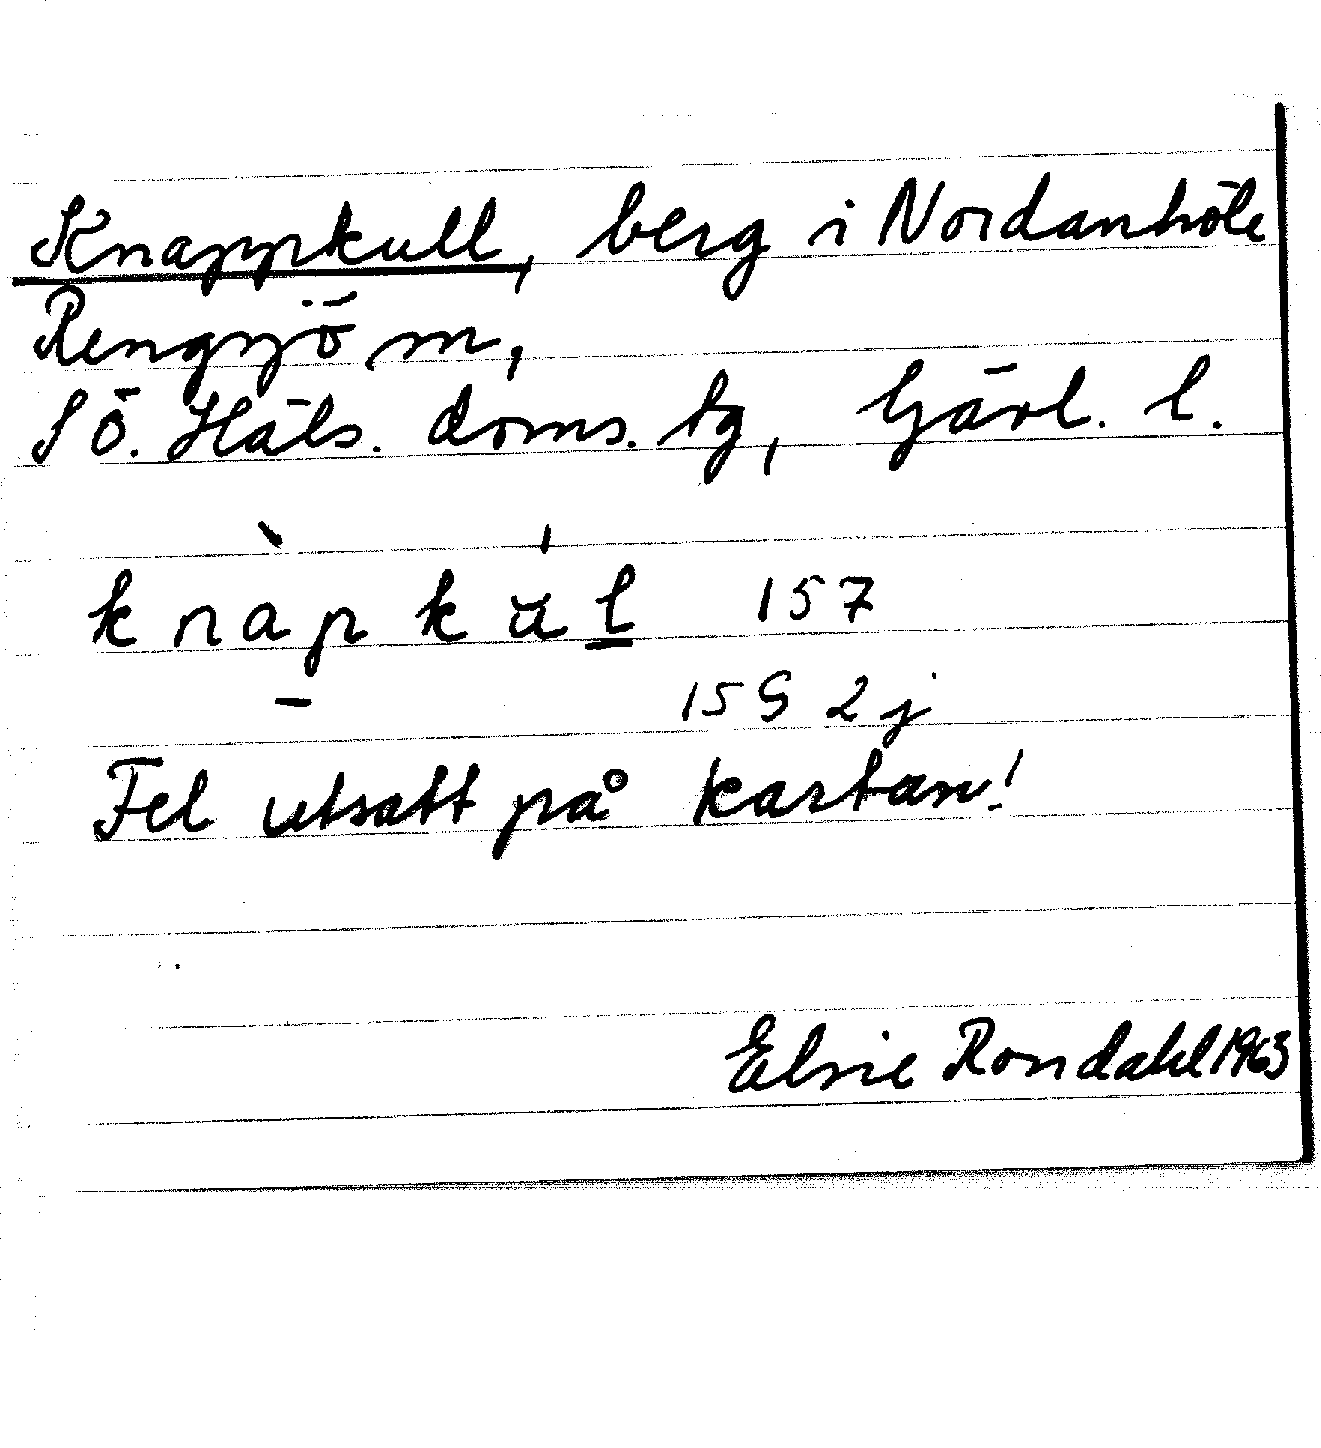 Knappkull, berg i Nordanhöle
Rengsjö sn,
Sö. Häls. doms. tg, Gävl. l.
knàpkúl 157
15G 2j
Fel utsatt på kartan!
Elsie Rondahl 1963